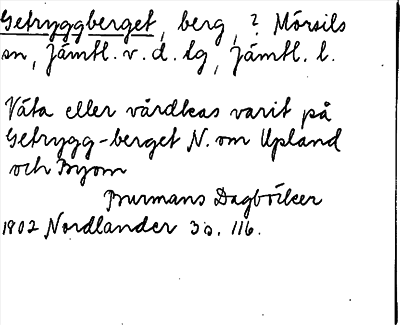 Getryggberget, berg, ? Mörsils
sn, Jämtl. v. d. lg, Jämtl. l.
Våta eller vårdkas varit på
Getrygg-berget N. om Upland
och Byom
Burmans Dagböcker
1802 Nordlander 3o. 116.